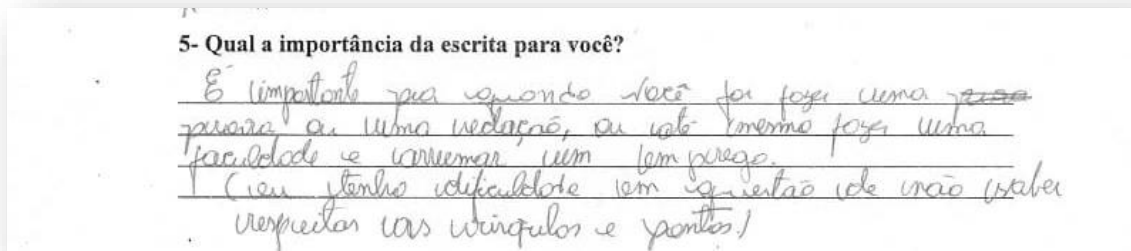 5- Qual a importância da escrita para você?
É importante pra quando você for fazer uma
prova ou uma redação, ou até mesmo fazer uma
faculdade e arrumar um emprego.
(eu tenho dificuldade em questão de não saber
respeitar as vírgulas e pontos)